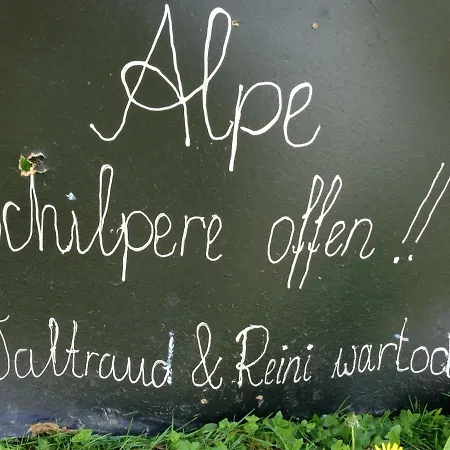 Alpe
Schilpere offen!!
Waltraud & Reini wartod